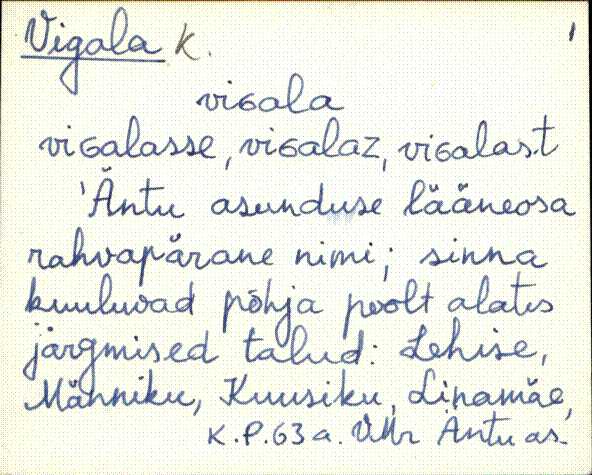 Vigala K. 1
viɢala
viɢalasse, viɢalaz, viɢalast
'Äntu asunduse lääneosa
rahvapärane nimi; sinna
kuuluvad põhja poolt alates
järgmised talud: Lehise,
Männiku, Kuusiku, Linamäe,
K.P.63 a. V.Mr Äntu as.